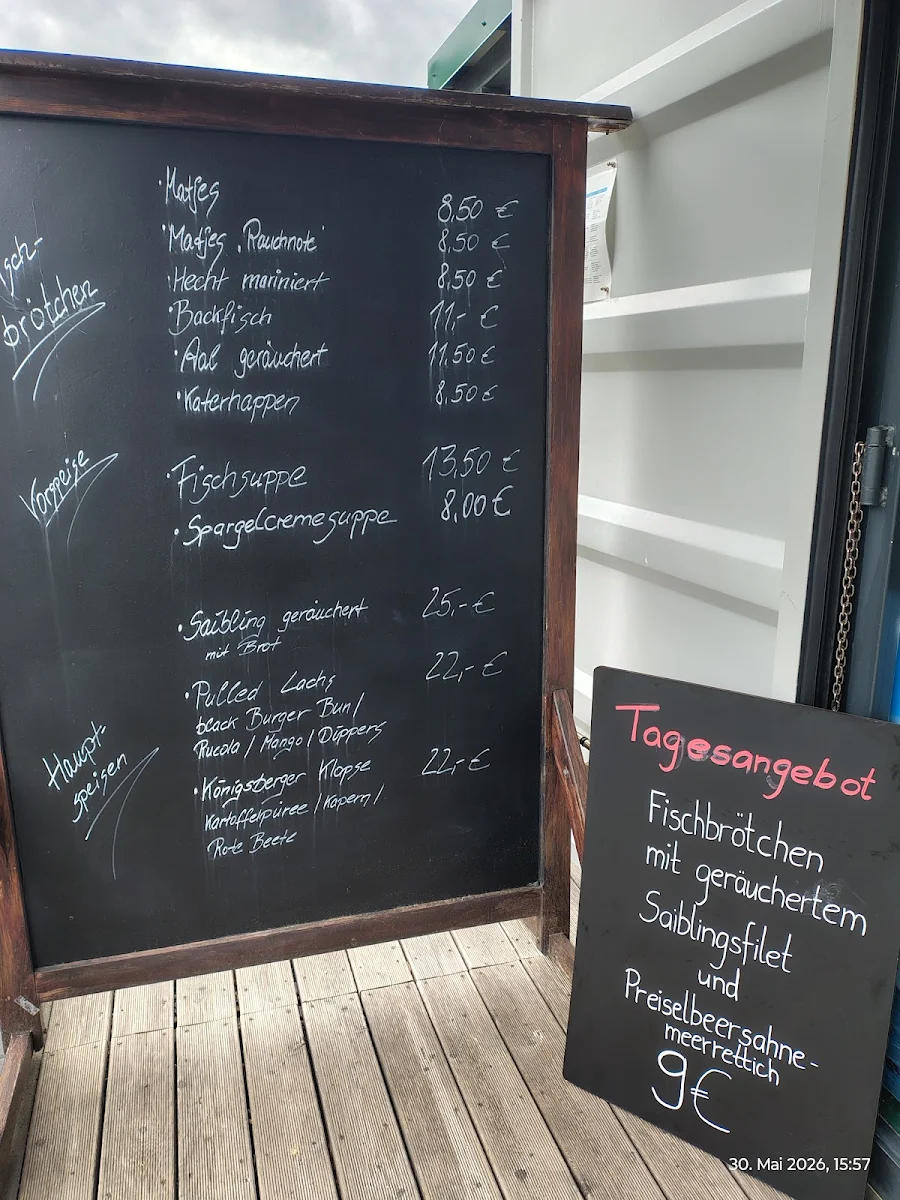 isch-
brötchen
· Matjes 8,50 €
· Matjes „Rauchnote“ 8,50 €
· Hecht mariniert 8,50 €
· Backfisch 11,- €
· Aal geräuchert 11,50 €
· Katerhappen 8,50 €
Vorspeise
· Fischsuppe 13,50 €
· Spargelcremesuppe 8,00 €
Haupt-
speisen
· Saibling geräuchert 25,- €
mit Brot
· Pulled Lachs 22,- €
black Burger Bun /
Rucola / Mango / Düppers
· Königsberger Klopse 22,- €
Kartoffelpüree / Kapern /
Rote Beete
Tagesangebot
Fischbrötchen
mit geräuchertem
Saiblingsfilet
und
Preiselbeersahne-
meerrettich
9€
30. Mai 2026, 15:57